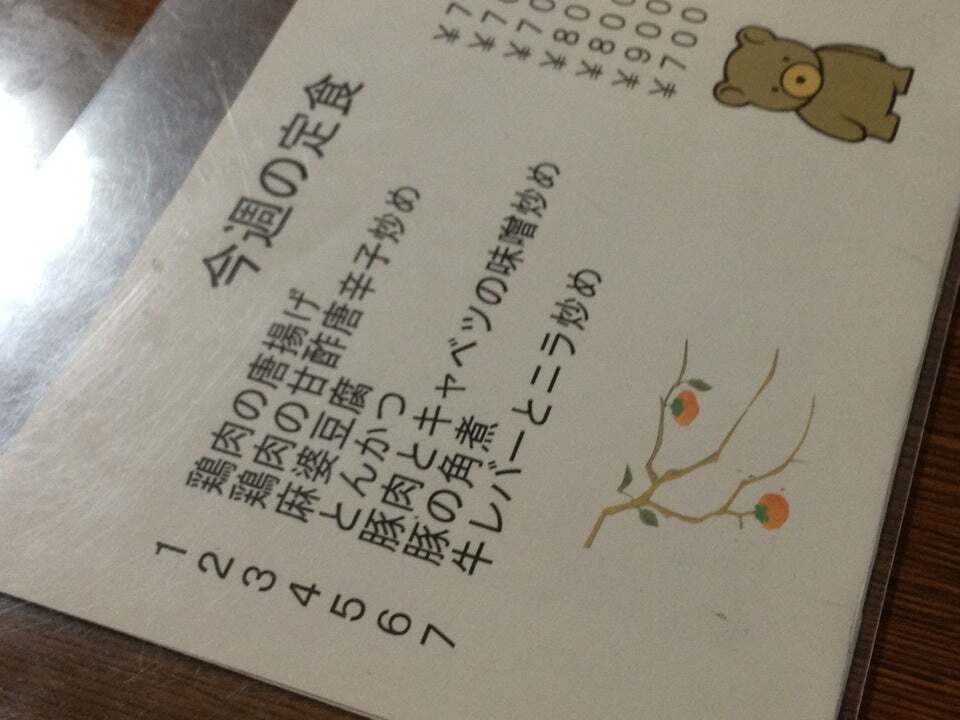 今週の定食
1 鶏肉の唐揚げ ¥7
2 鶏肉の甘酢唐辛子炒め ¥70
3 麻婆豆腐 ¥70
4 とんかつ ¥80
5 豚肉とキャベツの味噌炒め ¥800
6 豚の角煮 ¥900
7 牛レバーとニラ炒め ¥700